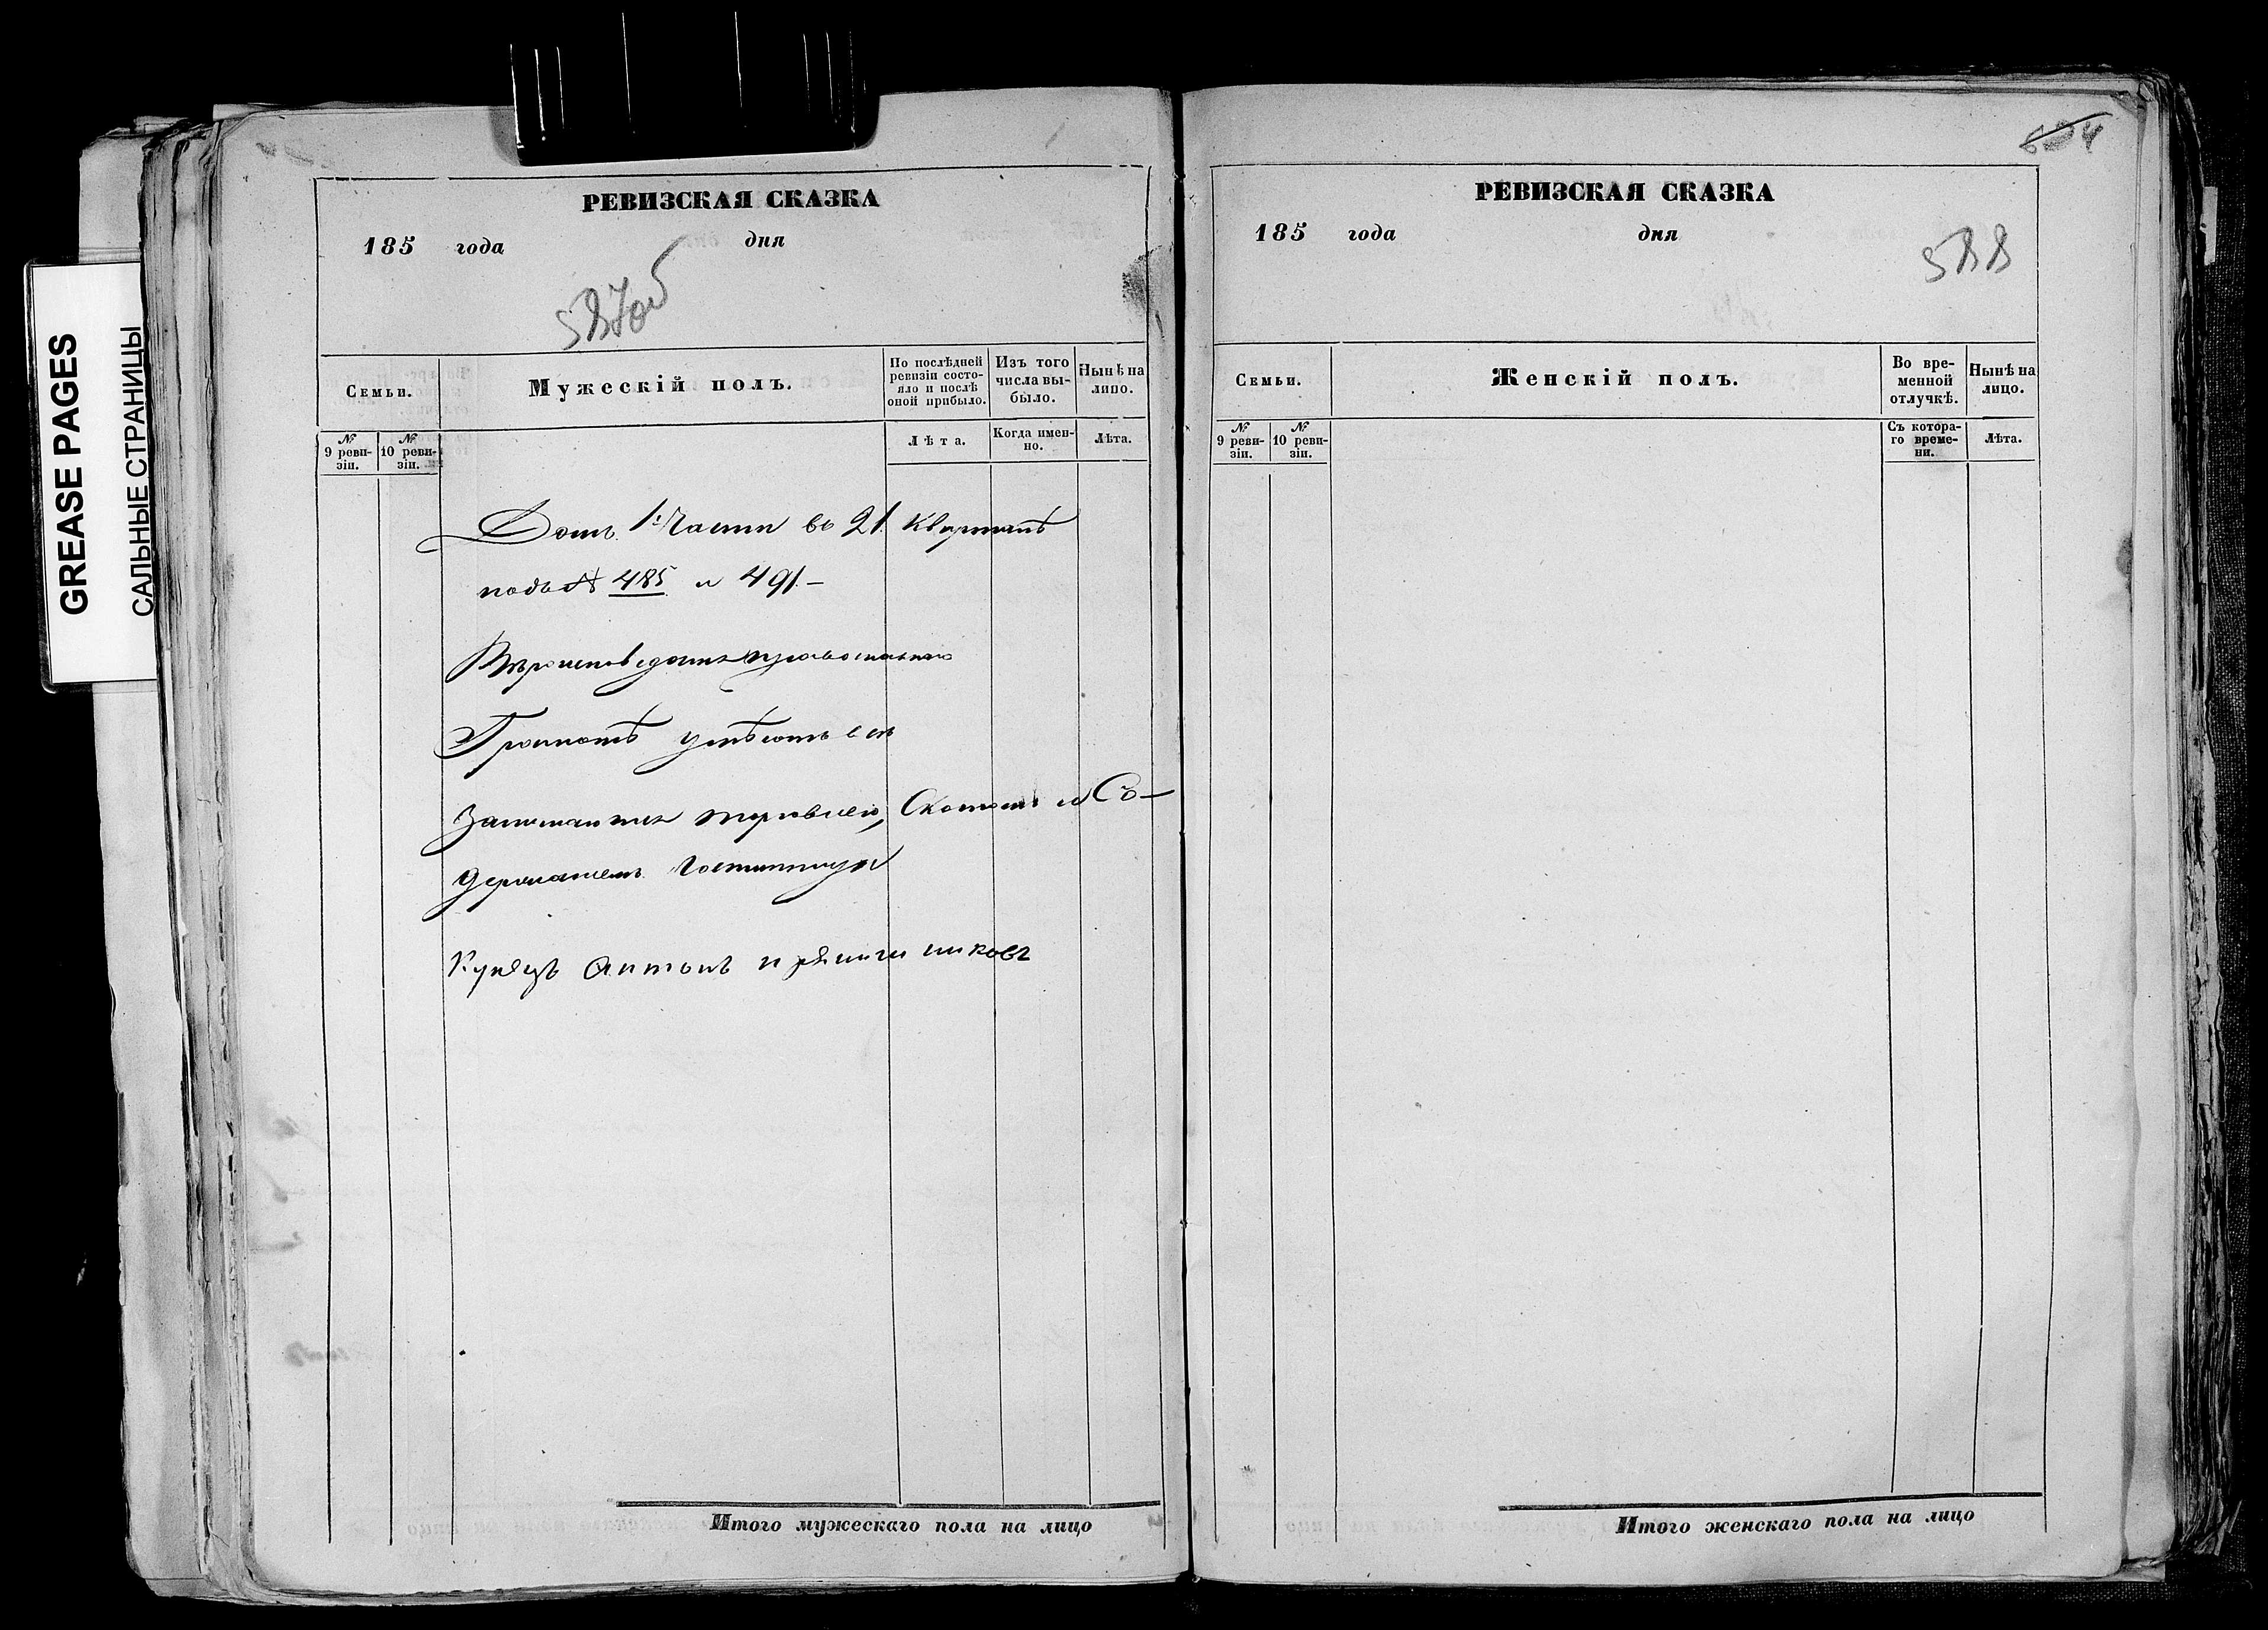 GREASE PAGES
САЛЬНЫЕ СТРАНИЦЫ
РЕВИЗСКАЯ СКАЗКА
185 года дня
587об
Семьи.
Мужескій полъ.
По послѣдней ревизіи состо-
яло и послѣ
оной прибыло.
Изъ того
числа вы-
было.
Нынѣ на
лицо.
№
9 реви-
зіи.
№
10 реви-
зіи.
Лѣта.
Когда имен-
но.
Лѣта.
Домъ 1й Части во 2м Кварталѣ
подъ № 485 и 491.—
Вѣроисповеданія православнаго
Грамотѣ умѣютъ всѣ
Занимаются торговлею, Скотомъ и Со-
держаніемъ Гостинницы
Купецъ Антонъ Прянишниковъ
Итого мужескаго пола на лицо
684
РЕВИЗСКАЯ СКАЗКА
185 года дня
588
Семьи.
Женскій полъ.
Во вре-
менной
отлучкѣ.
Нынѣ на
лицо.
№
9 реви-
зіи.
№
10 реви-
зіи.
Съ котора-
го време-
ни.
Лѣта.
Итого женскаго пола на лицо